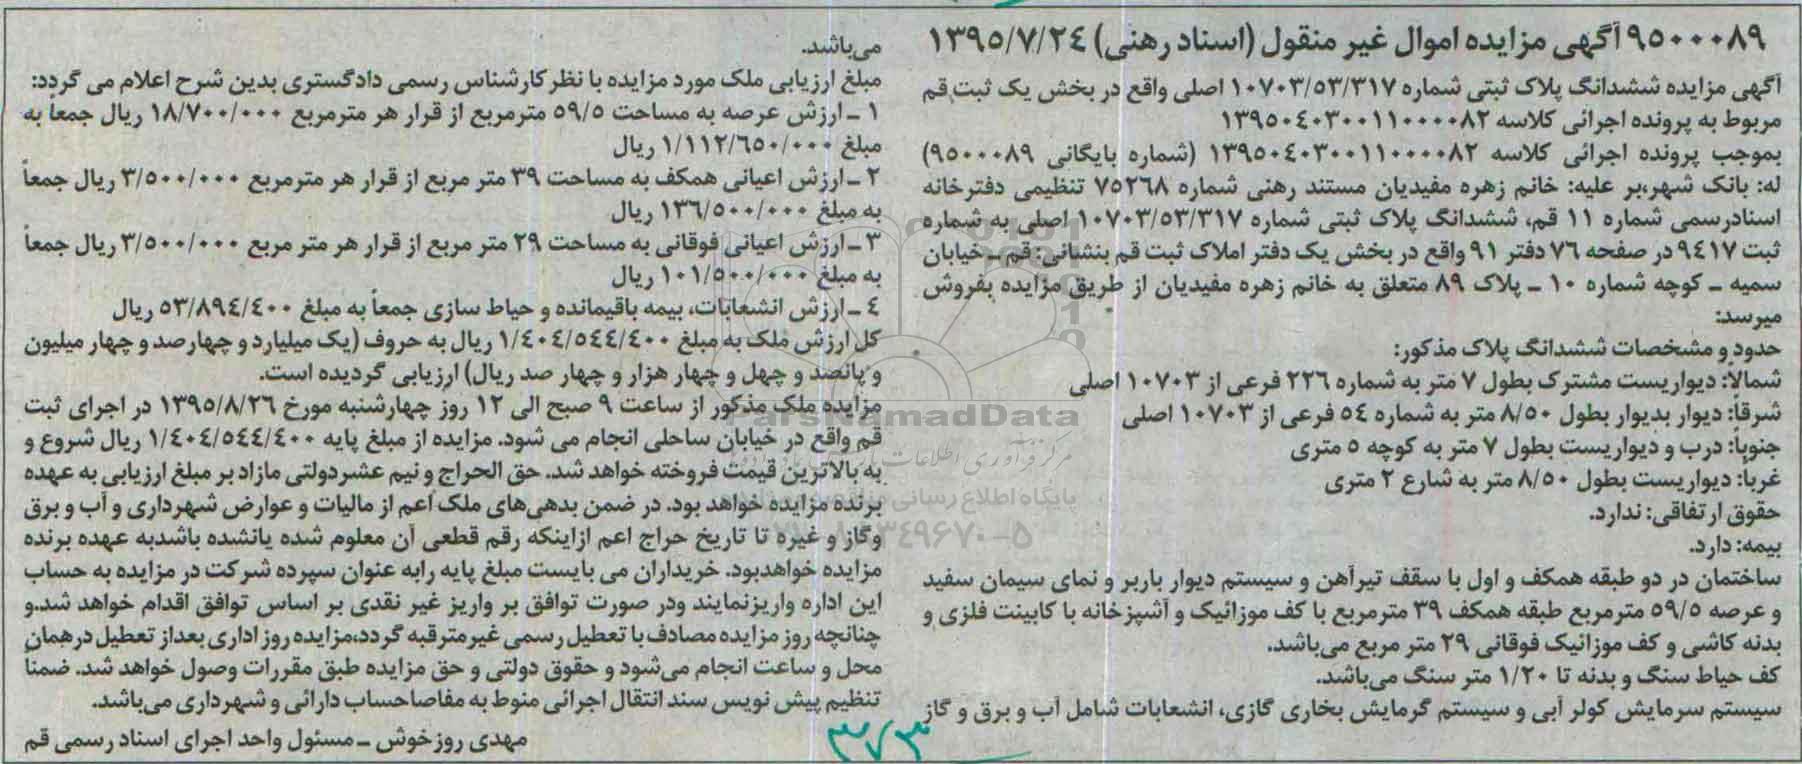 ۹۵۰۰۰۸۹ آگهی مزایده اموال غیر منقول (اسناد رهنی) ۱۳۹۵/۷/۲۴
آگهی مزایده ششدانگ پلاک ثبتی شماره ۱۰۷۰۳/۵۳/۳۱۷ اصلی واقع در بخش یک ثبت قم
مربوط به پرونده اجرائی کلاسه ۱۳۹۵۰۴۰۳۰۰۱۱۰۰۰۰۸۲
بموجب پرونده اجرائی کلاسه ۱۳۹۵۰۴۰۳۰۰۱۱۰۰۰۰۸۲ (شماره بایگانی ۹۵۰۰۰۸۹)
له: بانک شهر،بر علیه: خانم زهره مفیدیان مستند رهنی شماره ۷۵۲۶۸ تنظیمی دفترخانه
اسنادرسمی شماره ۱۱ قم، ششدانگ پلاک ثبتی شماره ۱۰۷۰۳/۵۳/۳۱۷ اصلی به شماره
ثبت ۹۴۱۷ در صفحه ۷۶ دفتر ۹۱ واقع در بخش یک دفتر املاک ثبت قم بنشانی: قم ـ خیابان
سمیه ـ کوچه شماره ۱۰ ـ پلاک ۸۹ متعلق به خانم زهره مفیدیان از طریق مزایده بفروش
میرسد:
حدود و مشخصات ششدانگ پلاک مذکور:
شمالا: دیواریست مشترک بطول ۷ متر به شماره ۲۲۶ فرعی از ۱۰۷۰۳ اصلی
شرقاً: دیوار بدیوار بطول ۸/۵۰ متر به شماره ۵٤ فرعی از ۱۰۷۰۳ اصلی
جنوبا: درب و دیواریست بطول ۷ متر به کوچه ۵ متری
غرباً: دیواریست بطول ۸/۵۰ متر به شارع ۲ متری
حقوق ارتفاقی: ندارد.
بیمه: دارد.
ساختمان در دو طبقه همکف و اول با سقف تیرآهن و سیستم دیوار باربر و نمای سیمان سفید
و عرصه ۵۹/۵ مترمربع طبقه همکف ۳۹ مترمربع با کف موزائیک و آشپزخانه با کابینت فلزی و
بدنه کاشی و کف موزائیک فوقانی ۲۹ متر مربع می‌باشد.
کف حیاط سنگ و بدنه تا ۱/۲۰ متر سنگ می‌باشد.
سیستم سرمایش کولر آبی و سیستم گرمایش بخاری گازی، انشعابات شامل آب و برق و گاز
می‌باشد.
مبلغ ارزیابی ملک مورد مزایده با نظر کارشناس رسمی دادگستری بدین شرح اعلام می گردد:
۱ ـ ارزش عرصه به مساحت ۵۹/۵ مترمربع از قرار هر مترمربع ۱۸/۷۰۰/۰۰۰ ریال جمعاً به
مبلغ ۱/۱۱۲/۶۵۰/۰۰۰ ریال
۲ ـ ارزش اعیانی همکف به مساحت ۳۹ متر مربع از قرار هر مترمربع ۳/۵۰۰/۰۰۰ ریال جمعاً
به مبلغ ۱۳۶/۵۰۰/۰۰۰ ریال
۳ ـ ارزش اعیانی فوقانی به مساحت ۲۹ متر مربع از قرار هر متر مربع ۳/۵۰۰/۰۰۰ ریال جمعاً
به مبلغ ۱۰۱/۵۰۰/۰۰۰ ریال
٤ ـ ارزش انشعابات، بیمه باقیمانده و حیاط سازی جمعاً به مبلغ ۵۳/۸۹٤/٤۰۰ ریال
کل ارزش ملک به مبلغ ۱/٤۰٤/۵٤٤/٤۰۰ ریال به حروف (یک میلیارد و چهارصد و چهار میلیون
و پانصد و چهل و چهار هزار و چهار صد ریال) ارزیابی گردیده است.
مزایده ملک مذکور از ساعت ۹ صبح الی ۱۲ روز چهارشنبه مورخ ۱۳۹۵/۸/۲۶ در اجرای ثبت
قم واقع در خیابان ساحلی انجام می شود. مزایده از مبلغ پایه ۱/٤۰٤/۵٤٤/٤۰۰ ریال شروع و
به بالاترین قیمت فروخته خواهد شد. حق الحراج و نیم عشردولتی مازاد بر مبلغ ارزیابی به عهده
برنده مزایده خواهد بود. در ضمن بدهی‌های ملک اعم از مالیات و عوارض شهرداری و آب و برق
وگاز و غیره تا تاریخ حراج اعم ازاینکه رقم قطعی آن معلوم شده یانشده باشدبه عهده برنده
مزایده خواهدبود. خریداران می بایست مبلغ پایه رابه عنوان سپرده شرکت در مزایده به حساب
این اداره واریزنمایند ودر صورت توافق بر واریز غیر نقدی بر اساس توافق اقدام خواهد شد.و
چنانچه روز مزایده مصادف با تعطیل رسمی غیرمترقبه گردد،مزایده روز اداری بعداز تعطیل درهمان
محل و ساعت انجام می‌شود و حقوق دولتی و حق مزایده طبق مقررات وصول خواهد شد. ضمناً
تنظیم پیش نویس سند انتقال اجرائی منوط به مفاصاحساب دارائی و شهرداری می‌باشد.
مهدی روزخوش ـ مسئول واحد اجرای اسناد رسمی قم
۳۷۳
ParsNamadData
پایگاه اطلاع رسانی